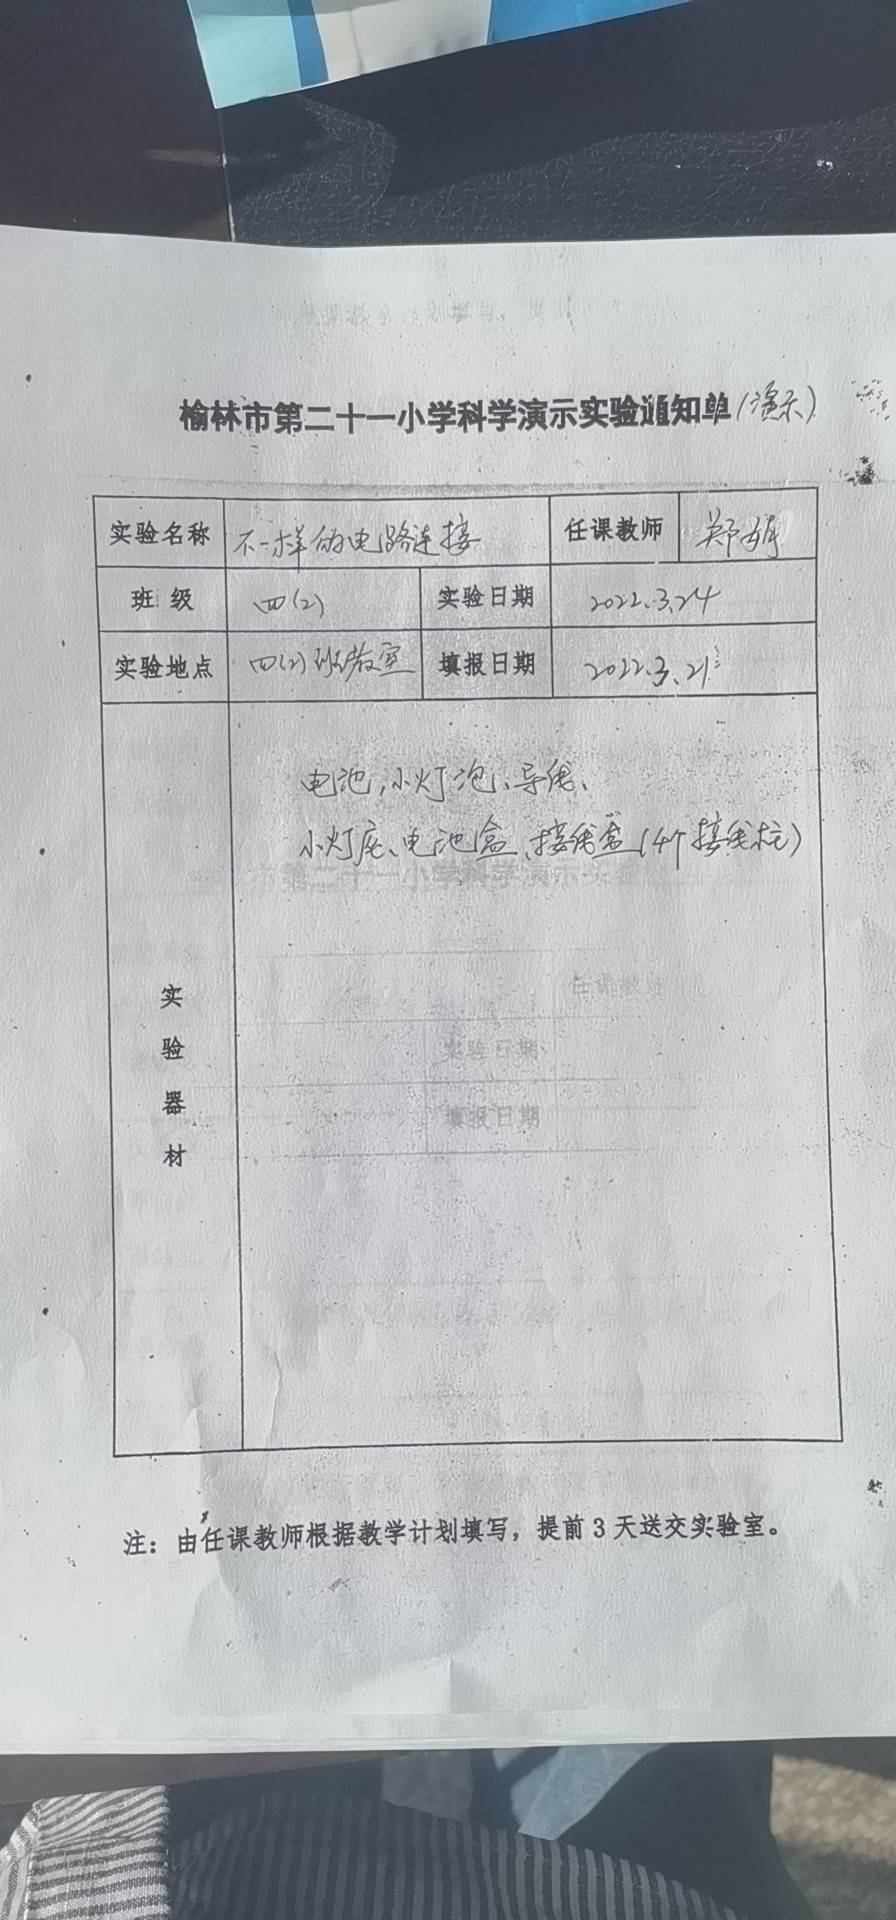 榆林市第二十一小学科学演示实验通知单(演示)
实验名称 不一样的电路连接 任课教师 郑娟
班级 四(2) 实验日期 2022.3.24
实验地点 四(2)班教室 填报日期 2022.3.21
电池,小灯泡、导线、
小灯座、电池盒、接线盒(4个接线柱)
实验器材
注：由任课教师根据教学计划填写，提前3天送交实验室。